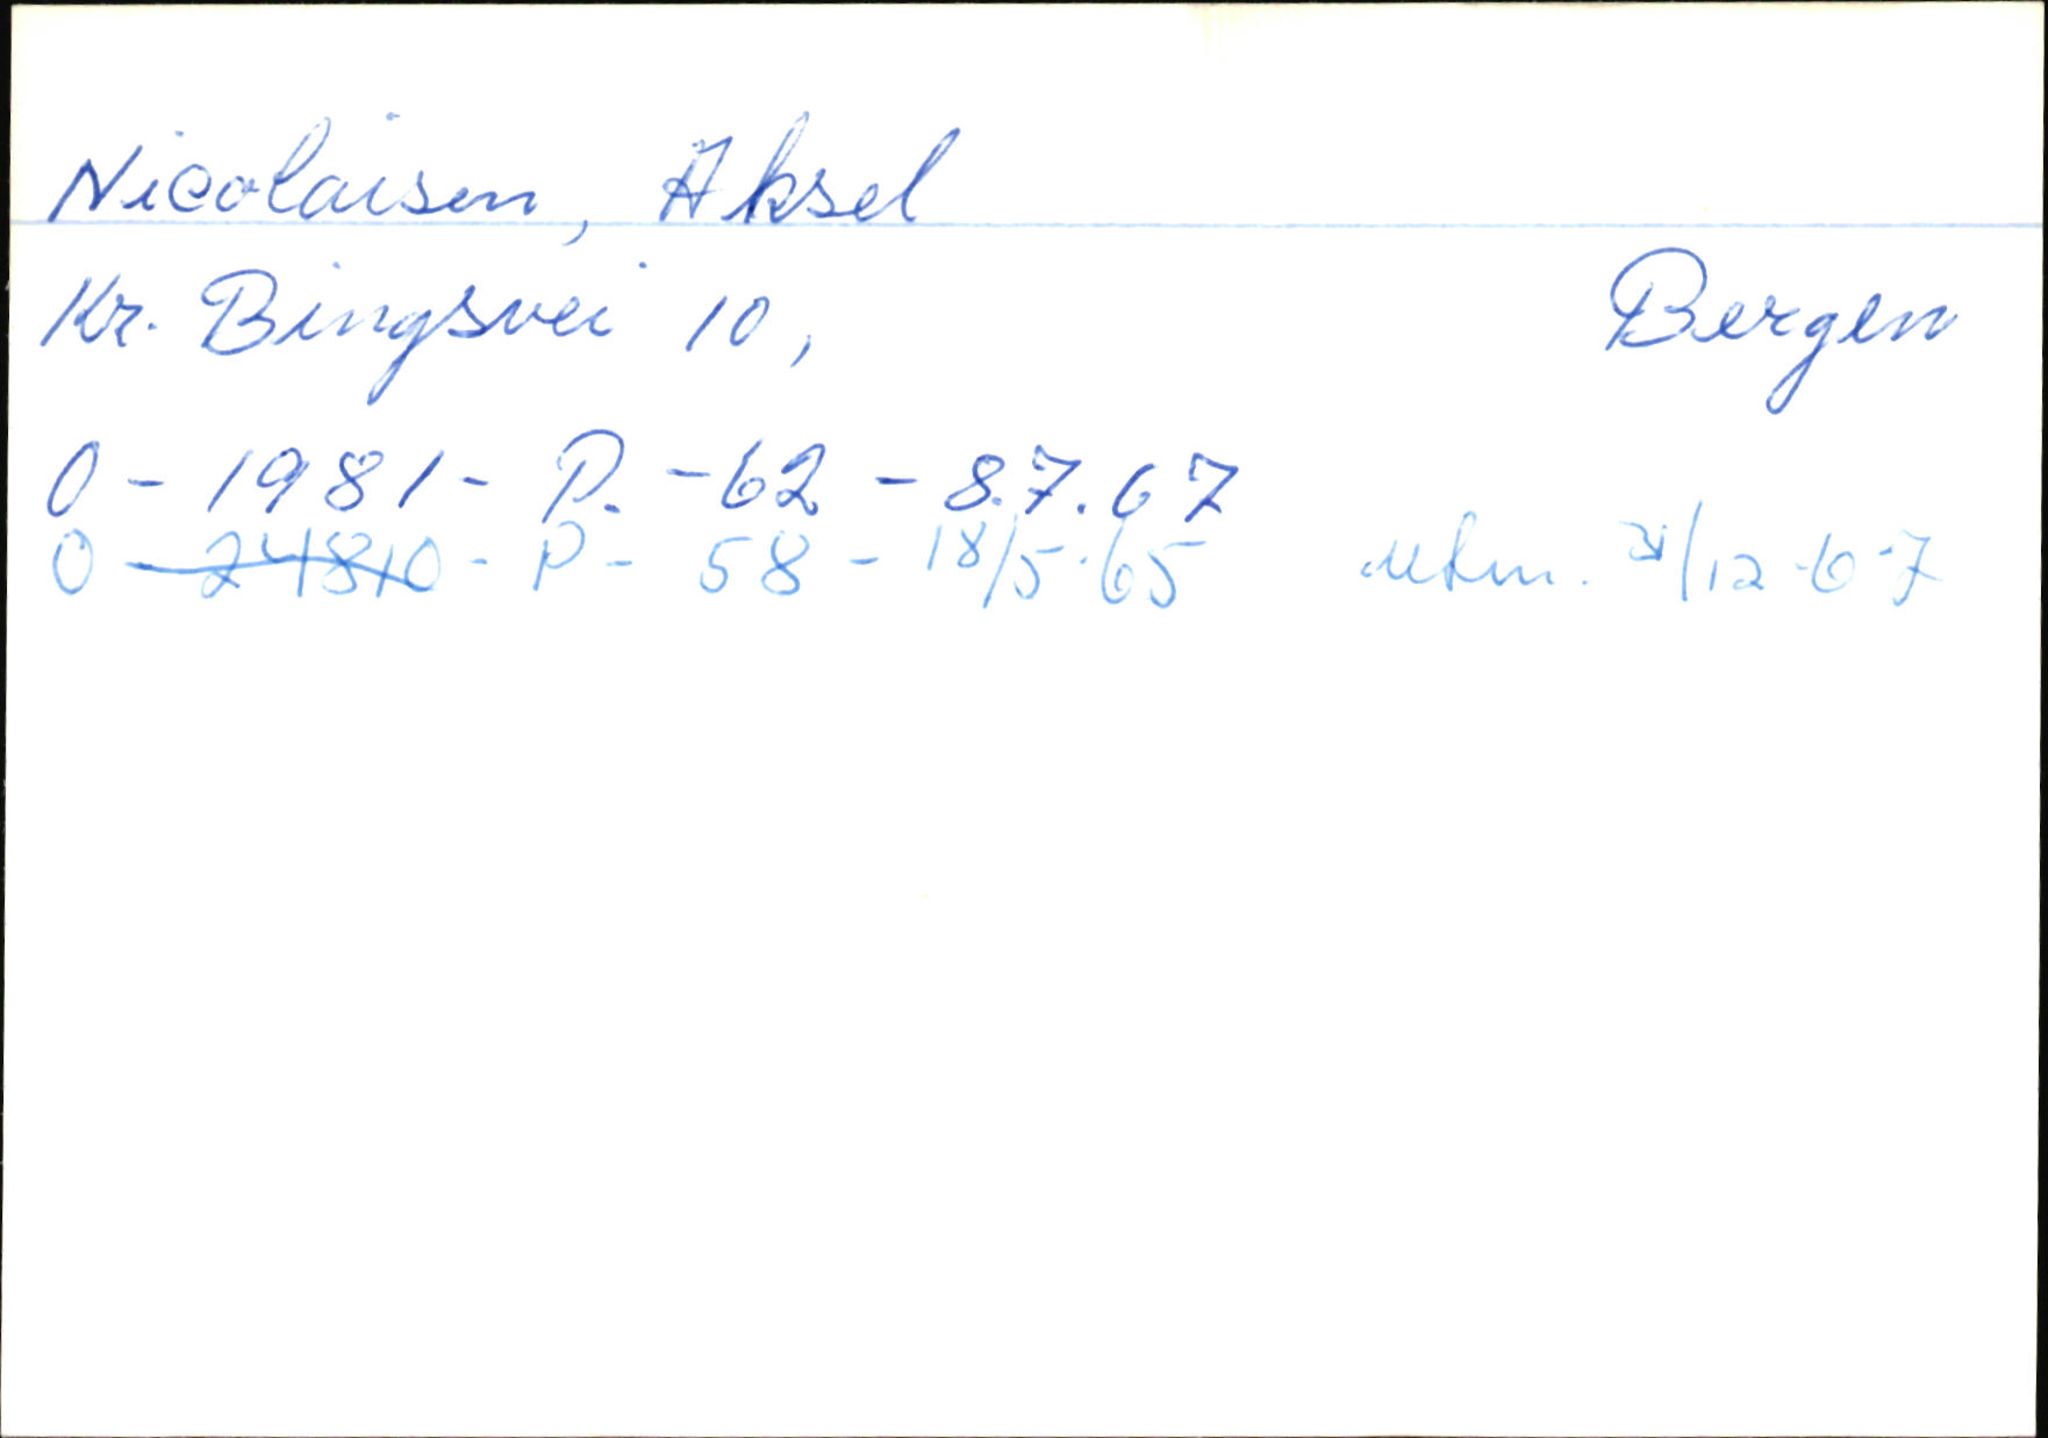 Nicolaisen, Aksel
Kr. Bingsvei 10, Bergen
O - 1981 - P. - 62 - 8.7.67
O - 24810 - P - 58 - 18/5-65 utm. 31/12-67